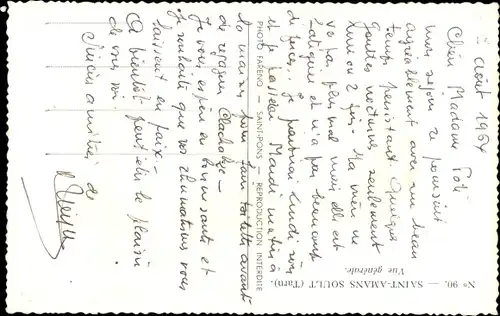 2 août 1964
Chère Madame
mon séjour se poursuit
agréablement avec un beau
temps persistant. Quelques
gouttes nocturnes seulement
une ou 2 fois. Ma mère ne
va pas plus mal mais elle est
fatiguée et n'a pas beaucoup
de Je partirai lundi soir
et je passerai Mardi matin à
la maison pour faire avant
de regagner
Je vous espère en bonne santé et
je souhaite que vos rhumatismes vous
laissent en paix.
A bientôt peut-être le plaisir
de vous voir.
Sincères amitiés de
N° 90. — SAINT-AMANS SOULT (Tarn).
Vue générale.
PHOTO FARENQ — SAINT-PONS — REPRODUCTION INTERDITE